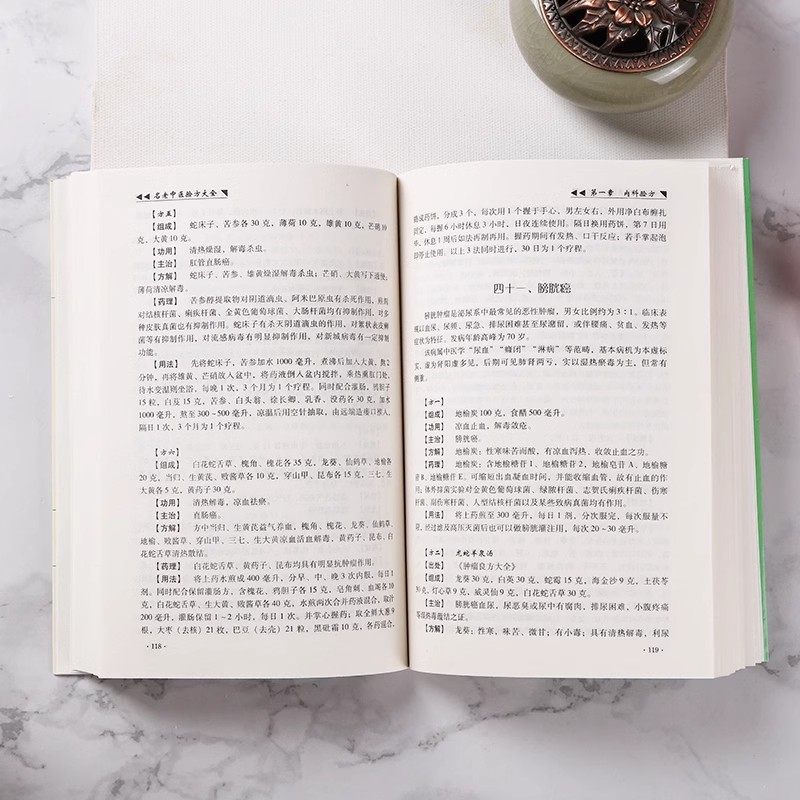 名老中医验方大全
【方五】
【组成】 蛇床子、苦参各30克，薄荷10克，雄黄10克，芒硝10
克，大黄10克。
【功用】 清热燥湿，解毒杀虫。
【主治】 肛管直肠癌。
【方解】 蛇床子、苦参、雄黄燥湿解毒杀虫；芒硝、大黄泻下通便；
薄荷清凉解毒。
【药理】 苦参醇提取物对阴道滴虫、阿米巴原虫有杀死作用，煎剂
对结核杆菌、痢疾杆菌、金黄色葡萄球菌、大肠杆菌均有抑制作用，对多
种皮肤真菌也有抑制作用。蛇床子有杀灭阴道滴虫的作用，对絮状表皮癣
菌等有抑制作用，对流感病毒有明显抑制作用，对新城病毒有一定抑制
功能。
【用法】 先将蛇床子、苦参加水1000毫升，煮沸后加入大黄，熬2
分钟，再将雄黄、芒硝放入盆中，将药液倒入盆内搅拌，乘热熏肛门处，
待水变温则坐浴，每晚1次，3个月为1个疗程。同时配合灌肠，鸦胆子
15粒，白及15克，苦参、白头翁、徐长卿、乳香、没药各30克，加水
1000毫升，熬至300~500毫升，凉温后用空针抽取，由远端造瘘口推入，
隔日1次，3个月为1个疗程。
【方六】
【组成】 白花蛇舌草、槐角、槐花各35克，龙葵、仙鹤草、地榆各
20克，当归、生黄芪、败酱草各10克，穿山甲、昆布各15克，三七、生
大黄各5克，黄药子30克。
【功用】 清热解毒，凉血祛瘀。
【主治】 直肠癌。
【方解】 方中当归、生黄芪益气养血，槐角、槐花、龙葵、仙鹤草、
地榆、败酱草、穿山甲、三七、生大黄凉血活血解毒，黄药子、昆布、白
花蛇舌草清热散结。
【药理】 白花蛇舌草、黄药子、昆布均具有明显抗肿瘤作用。
【用法】 将上药水煎成400毫升，分早、中、晚3次内服，每日1
剂。同时配合保留灌肠方，含槐花、鸦胆子各15克，皂角刺、血竭各10
克，白花蛇舌草、生大黄、败酱草各40克，水煎两次合并药液混合，取汁
200毫升，灌肠保留1~2小时，每日1次。并掌心握药；取全鲜大葱9
根，大枣（去核）21枚，巴豆（去壳）21粒，黑砒霜10克，各药混合，
·118·
第一章 内科验方
捣成药饼，分成3个，每次用1个握于手心，男左女右，外用净白布缠扎
固定，每握6小时休息3小时，日夜连续使用。隔日换用药饼，第7日用
毕，休息1周后如法再制再用。握药期间有发热、口干反应；若手掌起泡
即停止使用。以上3法同时进行，30日为1个疗程。
四十一、膀胱癌
膀胱肿瘤是泌尿系中最常见的恶性肿瘤，男女比例约为3∶1。临床表
现以血尿、尿频、尿急、排尿困难甚至尿潴留，或伴腰痛、贫血、发热等
症状为特征。发病年龄高峰为70岁。
该病属中医学“尿血”“癃闭”“淋病”等范畴，基本病机为本虚标
实，虚为肾阳虚多见，后期可见肺肾两亏，实以湿热瘀毒为主，但常有
侧重。
【方一】
【组成】 地榆炭100克，食醋500毫升。
【功用】 凉血止血，解毒敛疮。
【主治】 膀胱癌。
【方解】 地榆炭：性寒味苦而酸，有凉血泻热，收敛止血之功。
【药理】 地榆炭：含地榆糖苷1、地榆糖苷2、地榆皂苷A、地榆
糖苷B、地榆糖苷E。可缩短出血凝血时间，并能收缩血管，故有止血的作
用；体外抑菌实验对金黄色葡萄球菌、绿脓杆菌、志贺氏痢疾杆菌、伤寒
杆菌、副伤寒杆菌、人型结核杆菌以及某些致病真菌均有作用。
【用法】 将上药煎至300毫升，每日1剂，分次服完，每次服量不
限。经过滤及高压灭菌后也可以做膀胱灌注用，每次20~30毫升。
【方二】 龙蛇羊泉汤
【出处】 《肿瘤良方大全》
【组成】 龙葵30克，白英30克，蛇莓15克，海金沙9克，土茯苓
30克，灯心草9克，威灵仙9克，白花蛇舌草30克。
【主治】 膀胱癌血尿，尿恶臭或尿中有腐肉，排尿困难，小腹疼痛
等证热毒蕴结之证。
【方解】 龙葵：性寒，味苦、微甘；有小毒；具有清热解毒、利尿
·119·